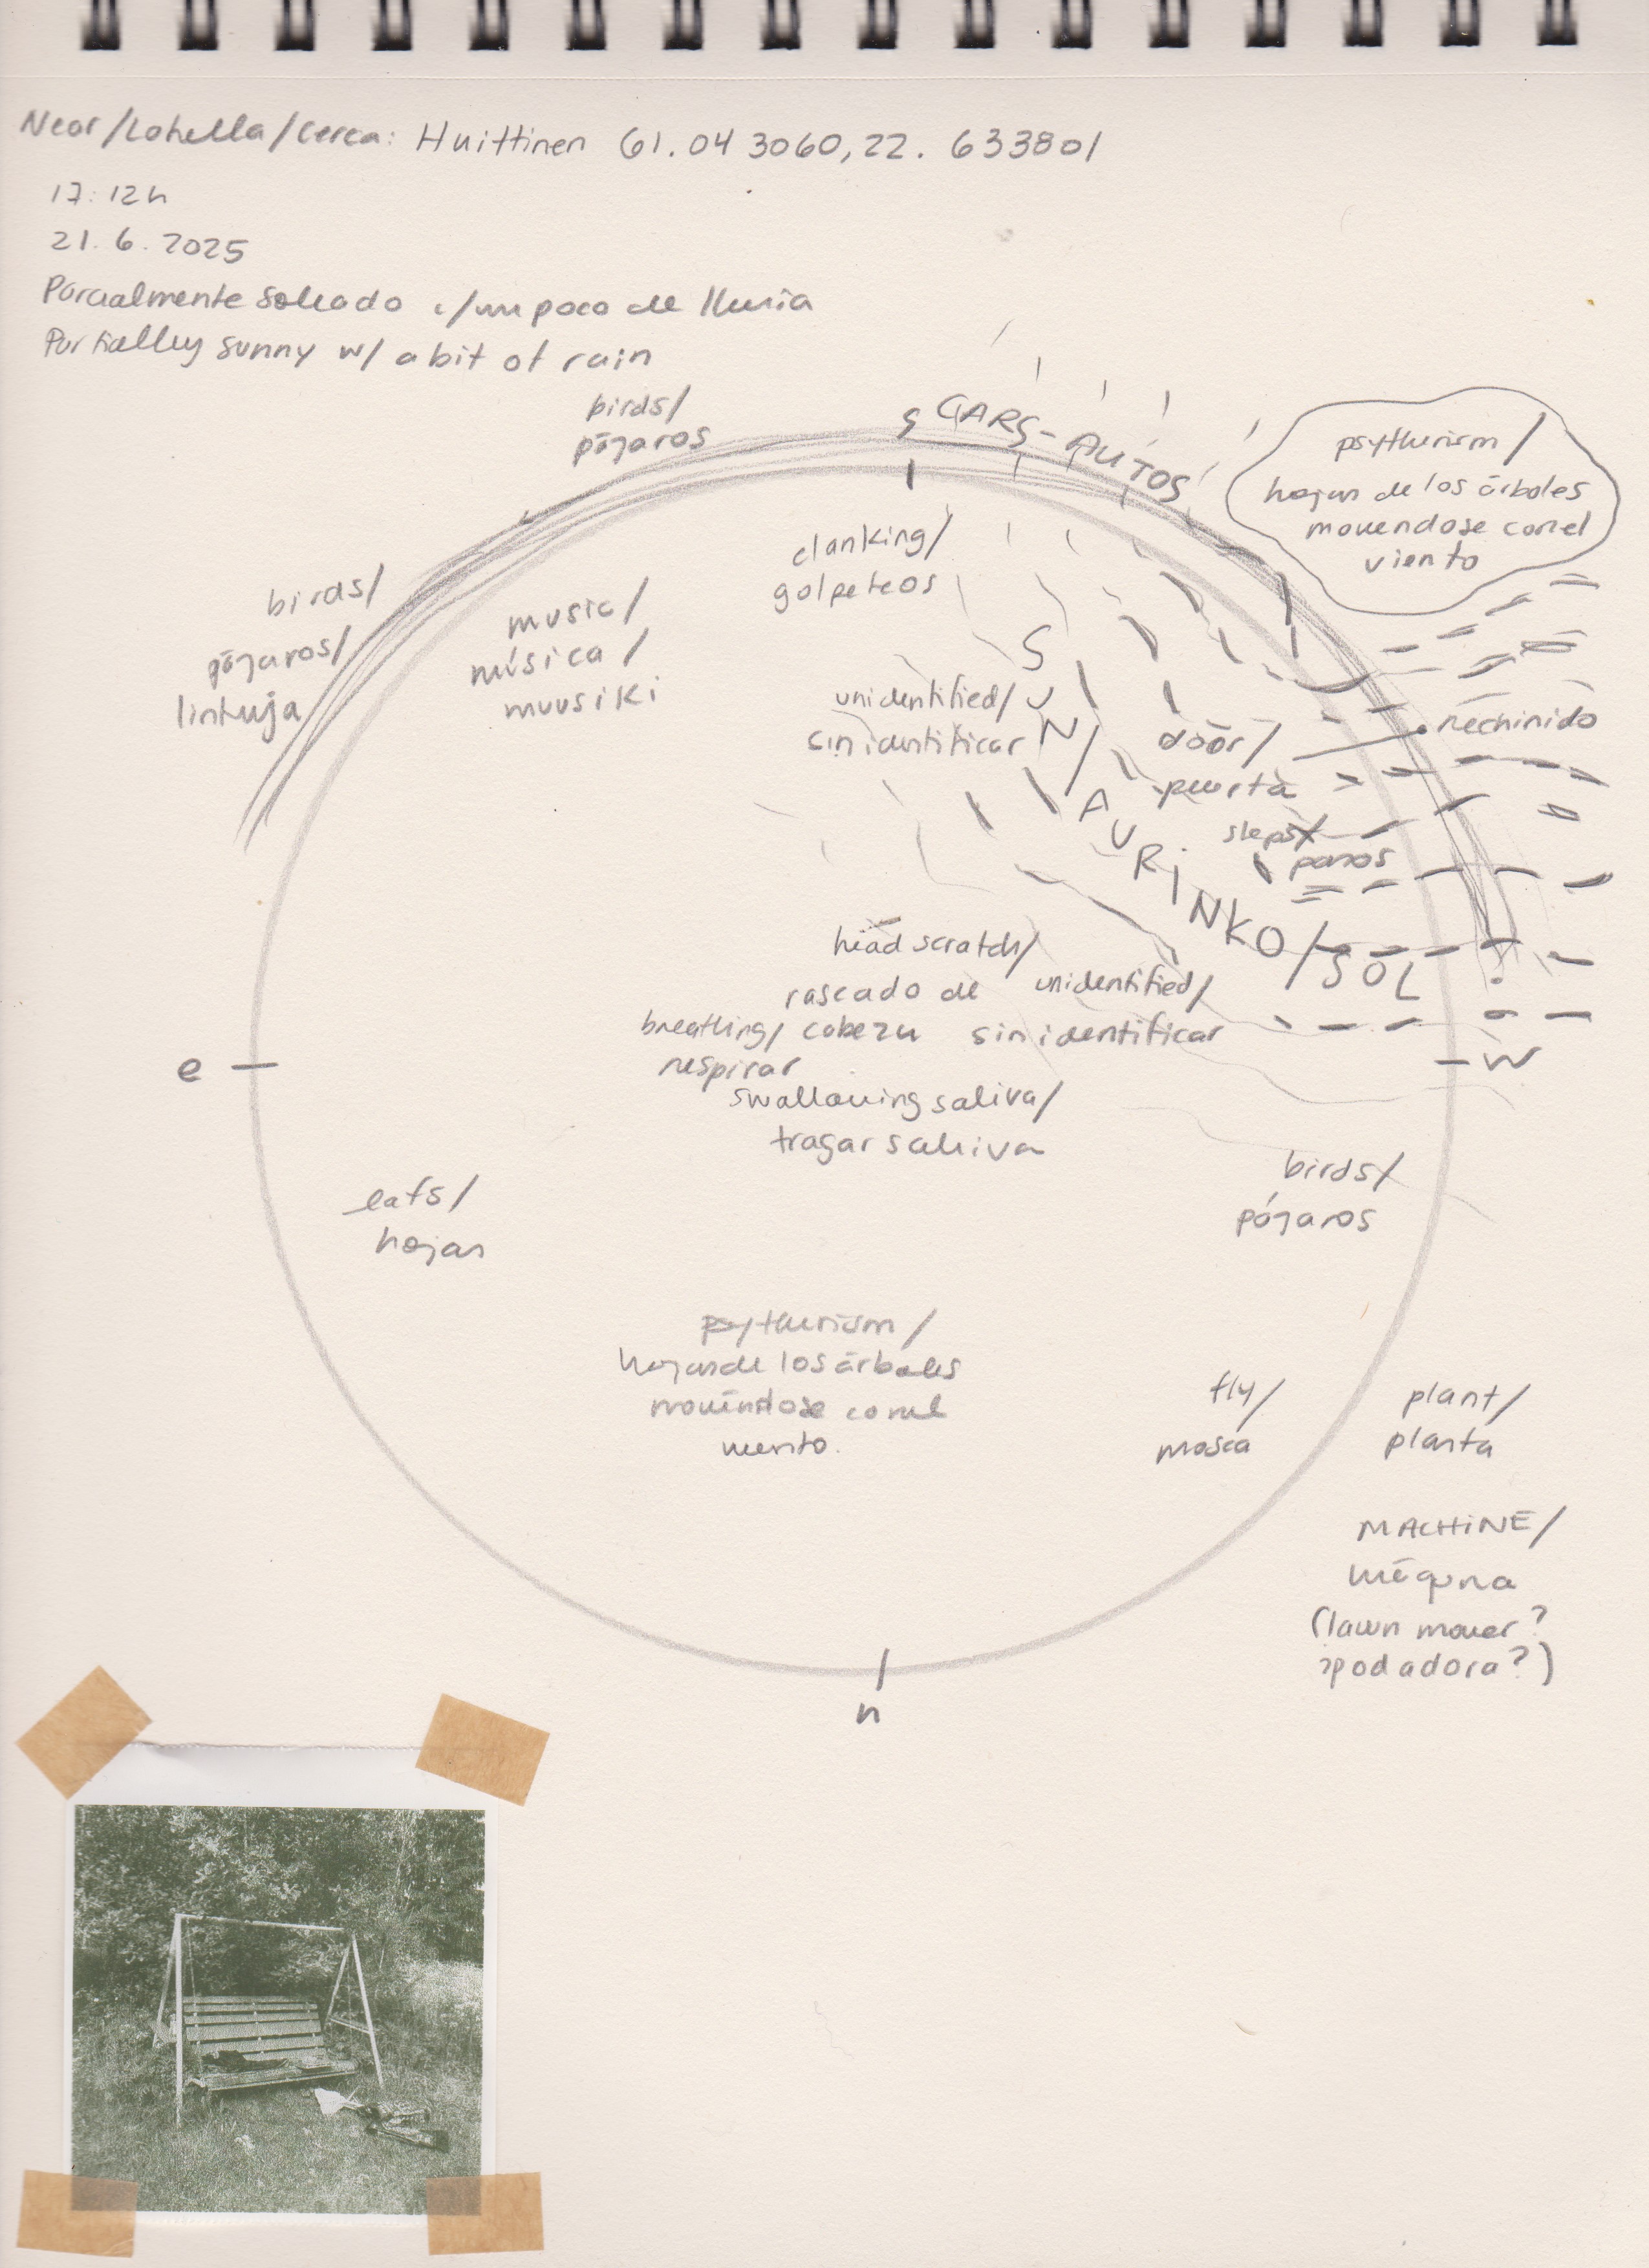 Near/Lähellä/Cerca: Huittinen 61.043060, 22.633801
17:12h
21.6.2025
Parcialmente soleado c/un poco de lluvia
Partially sunny w/ a bit of rain
birds/
pájaros
s CARS-AUTOS
psythurism/
hojas de los árboles
movendose con el
viento
birds/
pájaros/
lintuja
music/
música/
muusiki
clanking/
golpeteos
unidentified/
sin identificar
SUN/AURiNKO/SOL
door/
puerta
rechinido
steps/
pasos
head scratch/
rascado de
cabeza
unidentified/
sin identificar
breathing/
respirar
swallowing saliva/
tragar saliva
e
w
birds/
pájaros
leafs/
hojas
psythurism/
hojas de los árboles
movéndose con el
viento.
fly/
mosca
plant/
planta
MACHiNE/
máquina
(lawn mower?
¿podadora?)
n